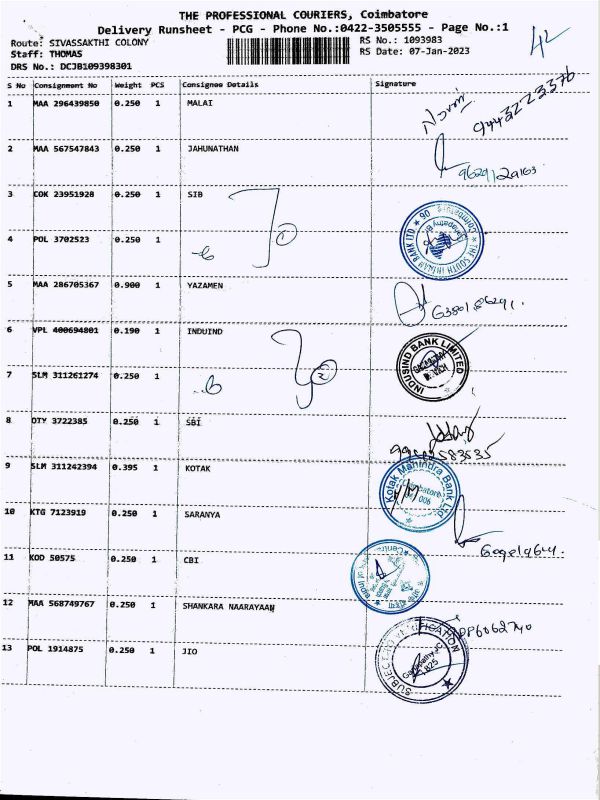 THE PROFESSIONAL COURIERS, Coimbatore
Delivery Runsheet - PCG - Phone No.:0422-3505555 - Page No.:1
Route: SIVASSAKTHI COLONY RS No.: 1093983
Staff: THOMAS RS Date: 07-Jan-2023
DRS No.: DCJB109398301
S No Consignment No Weight PCS Consignee Details Signature
1 MAA 296439850 0.250 1 MALAI
9443223376
2 MAA 567547843 0.250 1 JAHUNATHAN
3 COK 23951928 0.250 1 SIB
4 POL 3702523 0.250 1
THE SOUTH INDIAN BANK LTD
5 MAA 286705367 0.900 1 YAZAMEN
6 VPL 400694801 0.190 1 INDUIND
INDUSIND BANK LIMITED
7 SLM 311261274 0.250 1
2
8 OTY 3722385 0.250 1 SBI
9 SLM 311242394 0.395 1 KOTAK
Kotak Mahindra Bank Ltd
10 KTG 7123919 0.250 1 SARANYA
11 KOD 50575 0.250 1 CBI
12 MAA 568749767 0.250 1 SHANKARA NAARAYAAN
13 POL 1914875 0.250 1 JIO
SUBJECT TO VERIFICATION